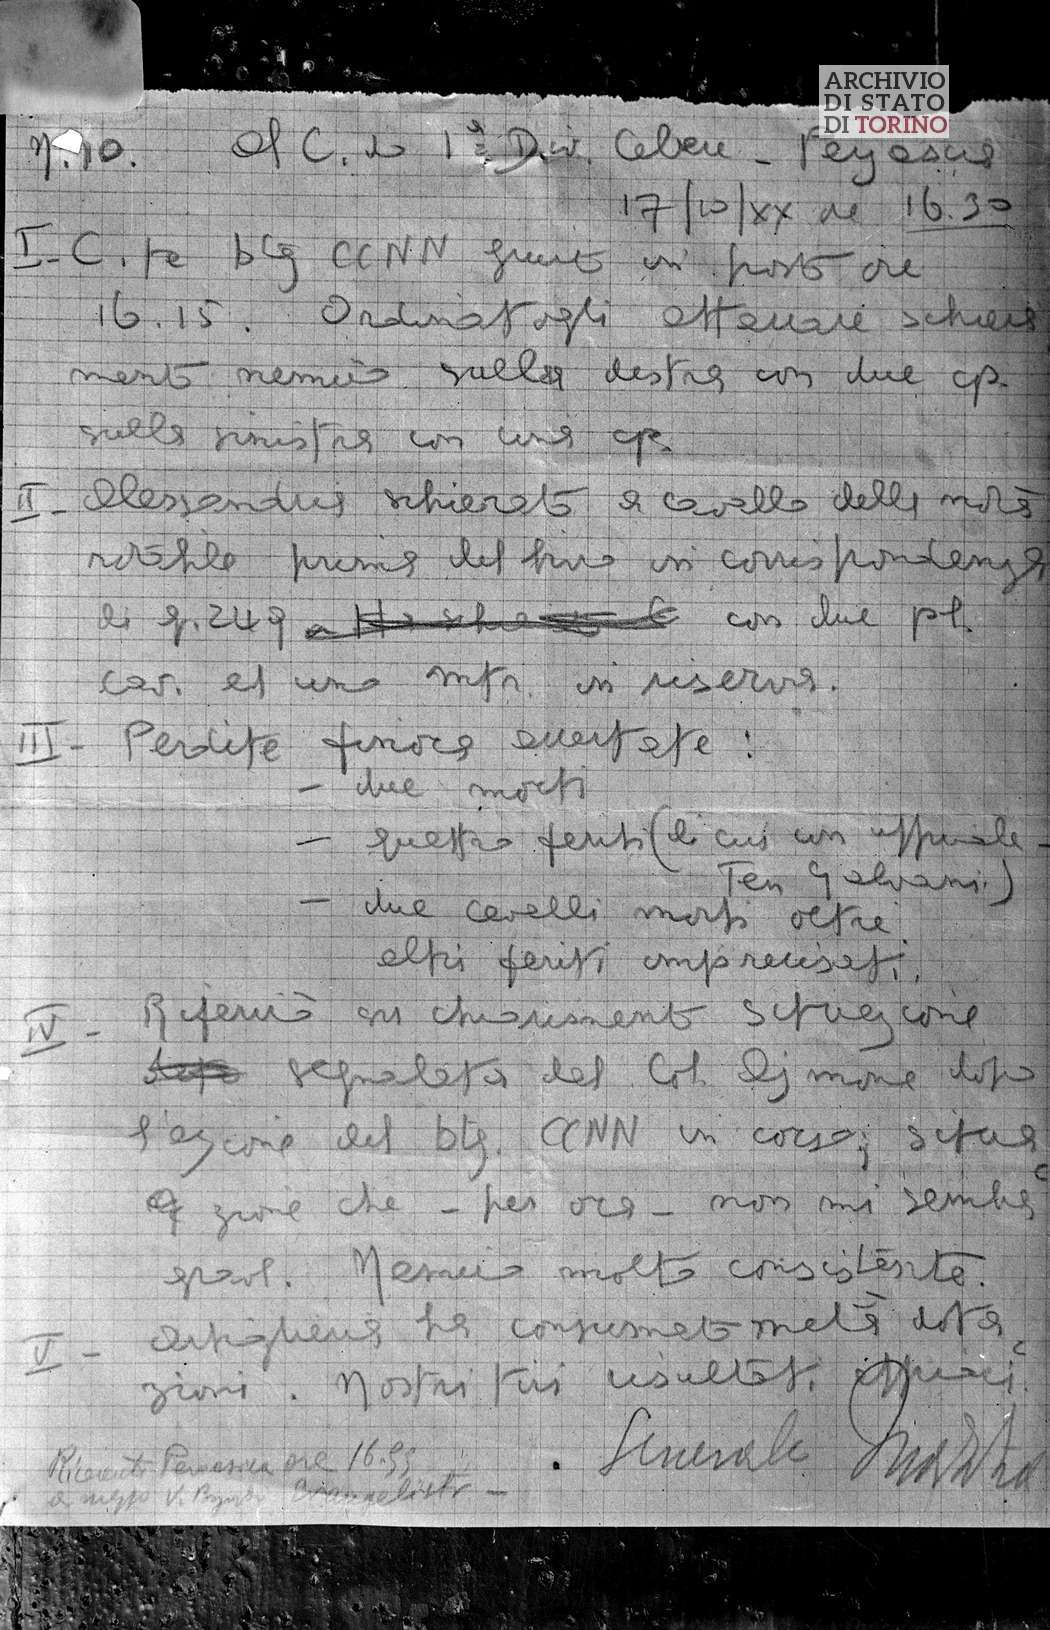 ARCHIVIO
DI STATO
DI TORINO
N. 10. Al C. do 1ª Div. Celere - Perjasica
17/10/XX ore 16.30
I - C. te btg CCNN giunto in posto ore
16.15. Ordinatogli attaccare schiera
mento nemico sulla destra con due cp.
sulla sinistra con una cp.
II - Alessandria schierato a cavallo della
rotabile prima del bivio in corrispondenza
di q. 249 con due pl.
cav. ed uno mtr. in riserva.
III - Perdite finora accertate:
- due morti
- quattro feriti (di cui un ufficiale -
Ten Galvani)
- due cavalli morti oltre
altri feriti imprecisati.
IV - Riferirò su chiarimento situazione
segnalata dal Col. Ajmone dopo
l'azione del btg. CCNN in corso; situa
zione che - per ora - non mi sembra
grave. Nemico molto consistente.
V - Artiglieria ha consumato metà dota
zioni. Nostri tiri risultati efficaci.
Generale
Ricevuto Perjasica ore 16.55
a mezzo V. Evangelisti -